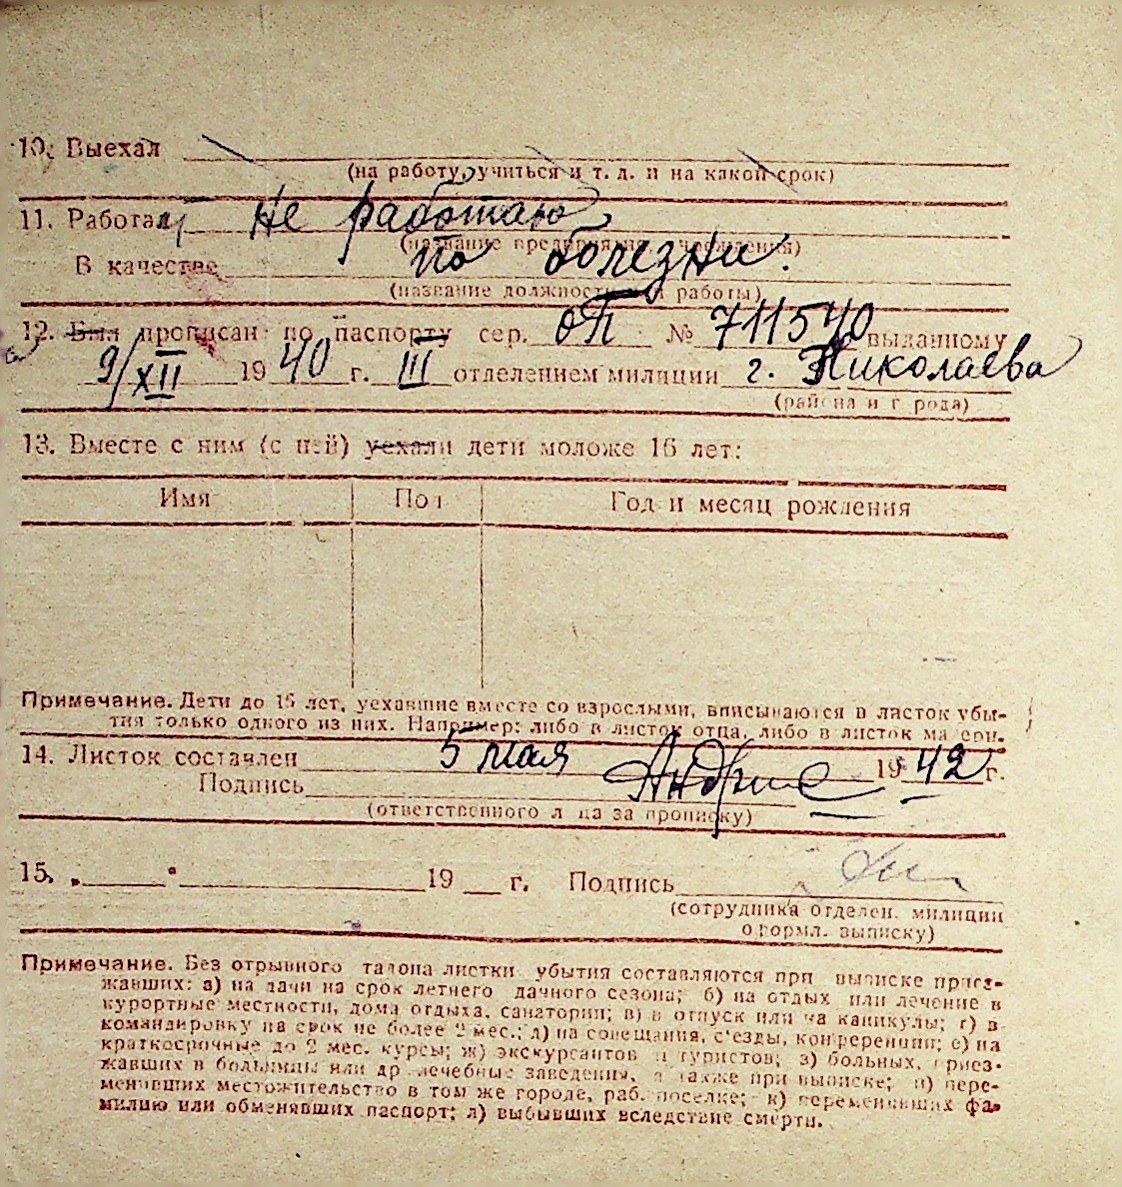 10. Выехал
(на работу, учиться и т. д. и на какой срок)
11. Работал Не работаю
(название предприятия, учреждения)
В качестве по болезни.
(название должности или работы)
12. Был прописан по паспорту сер. оП № 711540 выданному
9/XII 1940 г. III отделением милиции г. Николаева
(района и города)
13. Вместе с ним (с ней) уехали дети моложе 16 лет:
Имя Пол Год и месяц рождения
Примечание. Дети до 16 лет, уехавшие вместе со взрослыми, вписываются в листок убы-
тия только одного из них. Например: либо в листок отца, либо в листок матери.
14. Листок составлен 5 мая 1942 г.
Подпись
(ответственного лица за прописку)
15. „ " 19 г. Подпись
(сотрудника отделен. милиции
оформл. выписку)
Примечание. Без отрывного талона листки убытия составляются при выписке приез-
жавших: а) на дачи на срок летнего дачного сезона; б) на отдых или лечение в
курортные местности, дома отдыха, санатории; в) в отпуск или на каникулы; г) в
командировку на срок не более 2 мес.; д) на совещания, с'езды, конференции; е) на
краткосрочные до 2 мес. курсы; ж) экскурсантов и туристов; з) больных, приез-
жавших в больницы или др. лечебные заведения, а также при выписке; и) пере-
менивших местожительство в том же городе, раб. поселке; к) переменивших фа-
милию или обменявших паспорт; л) выбывших вследствие смерти.